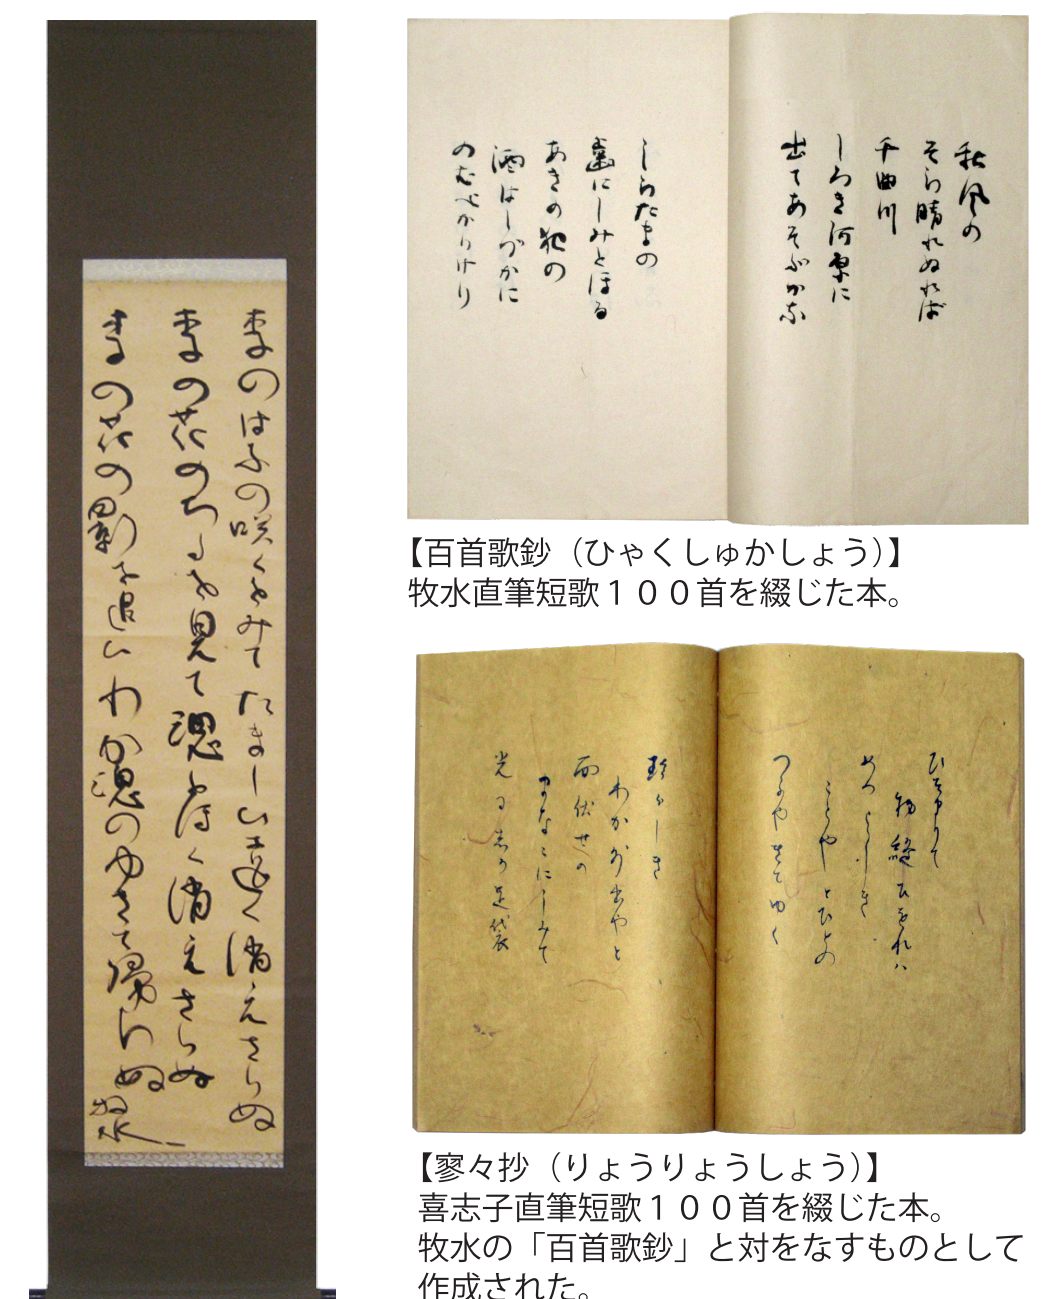 李のはなの咲くをみてたましい遠く消えさらぬ
李の花のちるを見て魂とほく消えさらぬ
李の花の影を追いわが魂のゆきて帰りぬ
牧水
秋風の
そら晴れぬれば
千曲川
しろき河原に
出てあそぶかな
しらたまの
歯にしみとほる
あきの夜の
酒はしづかに
のむべかりけり
【百首歌鈔（ひゃくしゅかしょう）】
牧水直筆短歌１００首を綴じた本。
物縫ひをれハ
わか
面伏せの
まなこにしみて
光る
足袋
【寥々抄（りょうりょうしょう）】
喜志子直筆短歌１００首を綴じた本。
牧水の「百首歌鈔」と対をなすものとして
作成された。